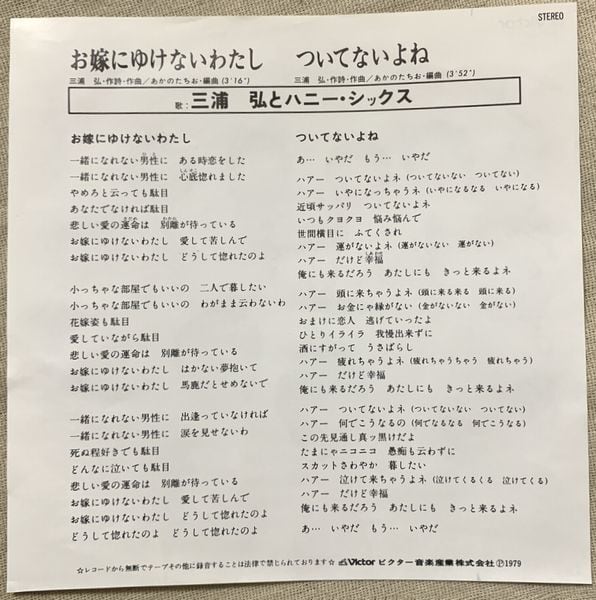 STEREO
お嫁にゆけないわたし
三浦 弘・作詩・作曲／あかのたちお・編曲 (3'16")
ついてないよね
三浦 弘・作詩・作曲／あかのたちお・編曲 (3'52")
歌：三浦 弘とハニー・シックス
お嫁にゆけないわたし
一緒になれない男性に ある時恋をした
一緒になれない男性に 心底惚れました
やめろと云っても駄目
あなたでなければ駄目
悲しい愛の運命は 別離が待っている
お嫁にゆけないわたし 愛して苦しんで
お嫁にゆけないわたし どうして惚れたのよ
小っちゃな部屋でもいいの 二人で暮したい
小っちゃな部屋でもいいの わがまま云わないわ
花嫁姿も駄目
愛していながら駄目
悲しい愛の運命は 別離が待っている
お嫁にゆけないわたし はかない夢抱いて
お嫁にゆけないわたし 馬鹿だとせめないで
一緒になれない男性に 出逢っていなければ
一緒になれない男性に 涙を見せないわ
死ぬ程好きでも駄目
どんなに泣いても駄目
悲しい愛の運命は 別離が待っている
お嫁にゆけないわたし 愛して苦しんで
お嫁にゆけないわたし どうして惚れたのよ
どうして惚れたのよ どうして惚れたのよ
ついてないよね
あ… いやだ もう… いやだ
ハアー ついてないよネ (ついてないない ついてない)
ハアー いやになっちゃうネ (いやになるなる いやになる)
近頃サッパリ ついてないよネ
いつもクヨクヨ 悩み悩んで
世間横目に ふてくされ
ハアー 運がないよネ (運がないない 運がない)
ハアー だけど幸福
俺にも来るだろう あたしにも きっと来るよネ
ハアー 頭に来ちゃうよネ (頭に来る来る 頭に来る)
ハアー お金にゃ縁がない (金がないない 金がない)
おまけに恋人 逃げていったよ
ひとりイライラ 我慢出来ずに
酒にすがって うさばらし
ハアー 疲れちゃうよネ (疲れちゃうちゃう 疲れちゃう)
ハアー だけど幸福
俺にも来るだろう あたしにも きっと来るよネ
ハアー ついてないよネ (ついてないない ついてない)
ハアー 何でこうなるの (何でなるなる 何でこうなる)
この先見通し真ッ黒けだよ
たまにゃニコニコ 愚痴も云わずに
スカットさわやか 暮したい
ハアー 泣けて来ちゃうよネ (泣けてくるくる 泣けてくる)
ハアー だけど幸福
俺にも来るだろう あたしにも きっと来るよネ
あ… いやだ もう… いやだ
☆レコードから無断でテープその他に録音することは法律で禁じられております☆ Victor ビクター音楽産業株式会社 ℗1979